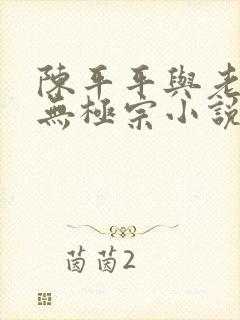 陳平平與老
無極宗小說
茵茵2